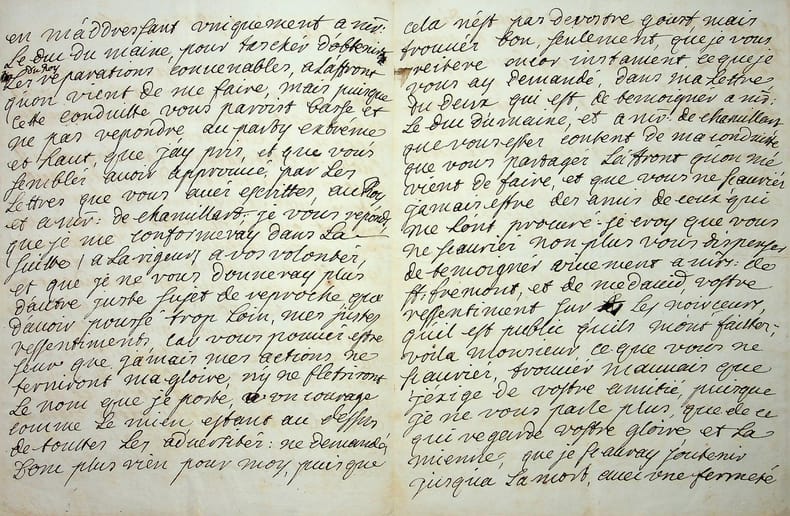 en m'addressant vniquement a mr:
Le duc du maine, pour tascher d'obtenir
du Roy
Les reparations conuenables, a Laffront
quon vient de me faire, mais puisque
cette conduitte vous paroist basse et
ne pas repondre au party extréme
et haut, que j'ay pris, et que vous
semblés auoir approuué, par Les
Lettres que vous aués escrittes, au Roy,
et a mr: de chamillard: je vous repond,
que je me conformeray dans La
suitte, a La rigeur, a vos volontés,
et que je ne vous donneray plus
dautre juste sujet de reproche, que
dauoir poussé trop Loin, mes justes
ressentiments, car vous pouués estre
seur que jamais mes actions ne
terniront ma gloire, ny ne fletriront
Le nom que je porte, un courage
comme Le mien, estant au dessus
de touttes Les aduersités: ne demandés
Donc plus rien pour moy, puis que
cela n'est pas de vostre goust, mais
trouués bon, seulement, que je vous
reitere encor instament ce que je
vous ay demandé, dans ma Lettre
du deux qui est de temoigner a mr:
Le duc du maine, et a mr: de chamillart
que vous estes content de ma conduitte
que vous partagés Laffront qu'on me
vient de faire, et que vous ne scauriés
jamais estre des amis de ceux qui
me Lont procuré. je croy que vous
ne scauriés non plus vous dispenser
de temoigner viuement a mrs: de
st. fremont, et de medauid, vostre
ressentiment sur Les noirceurs
qu'il est public qu'ils m'ont faittes,
voila monsieur, ce que vous ne
scauriés, trouuer mauuais que
j'exige de vostre amitié, puisque
je ne vous parle plus, que de ce
qui regarde vostre gloire et La
mienne, que je scauray soutenir
jusqua La mort, auec vne fermeté